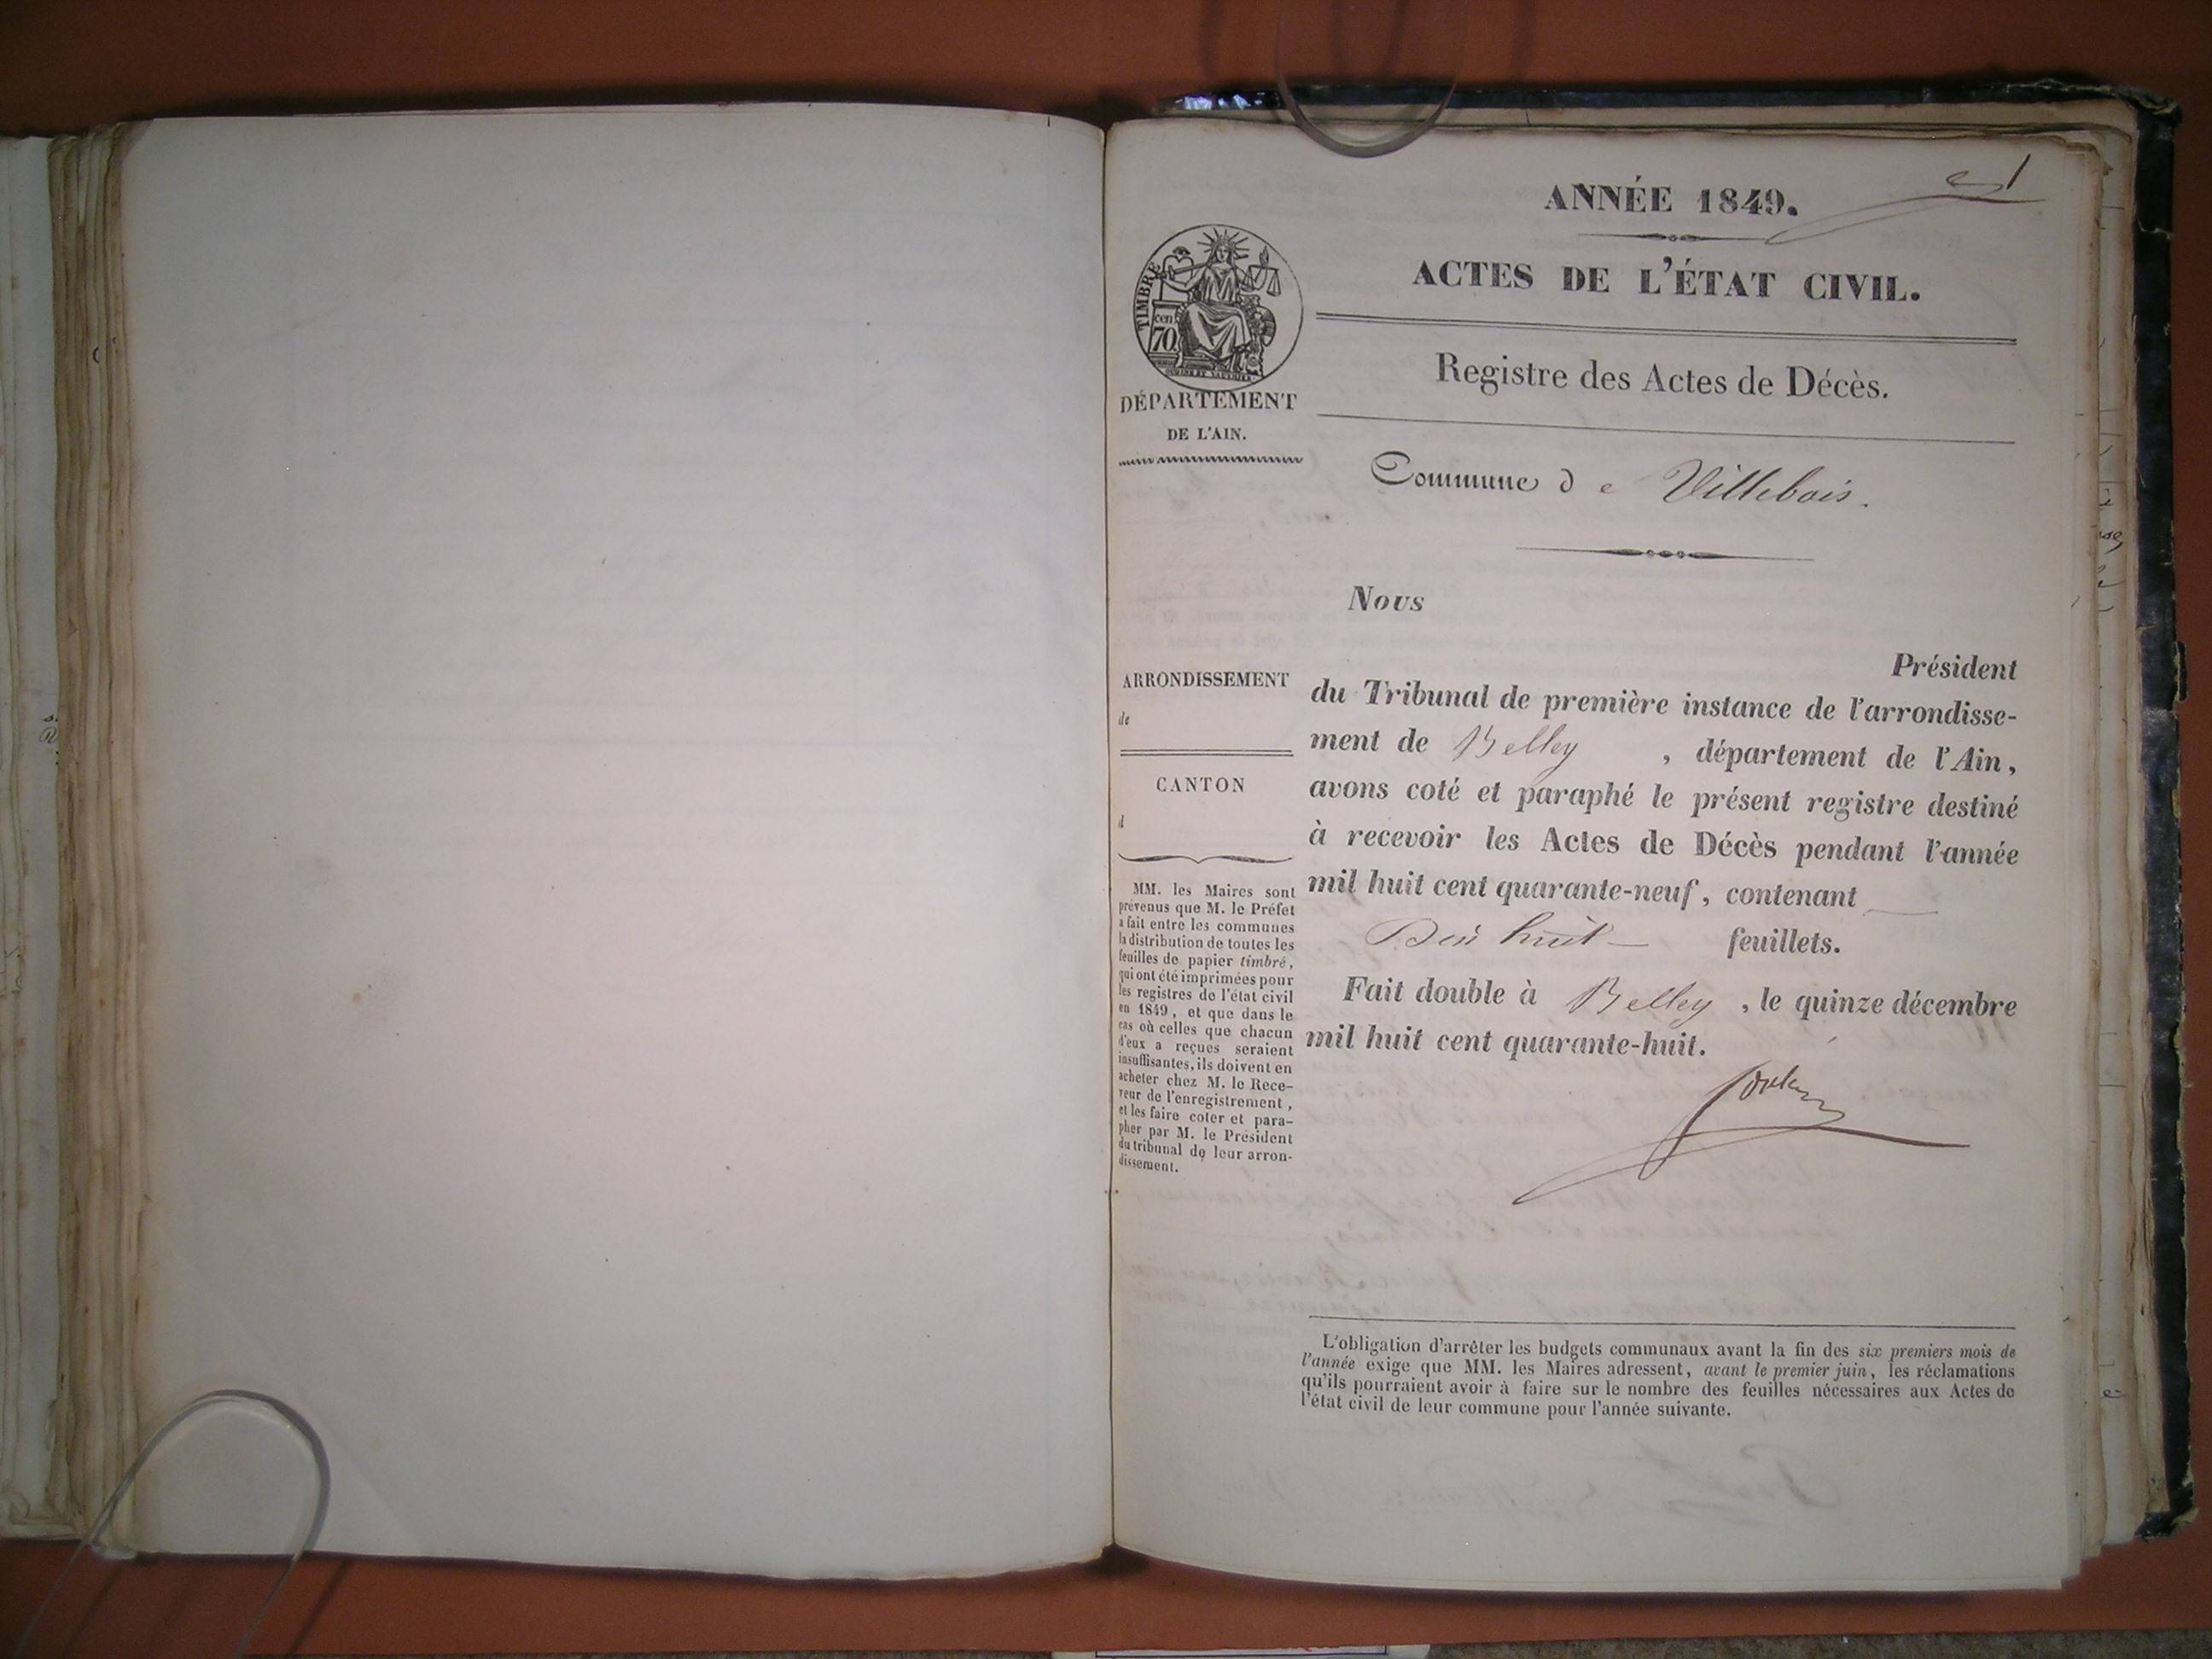 1
ANNÉE 1849.
ACTES DE L'ÉTAT CIVIL.
TIMBRE
cen
70
DÉPARTEMENT
DE L'AIN.
Registre des Actes de Décès.
Commune de Villebois.
Nous
Président
du Tribunal de première instance de l'arrondisse-
ment de Belley, département de l'Ain,
avons coté et paraphé le présent registre destiné
à recevoir les Actes de Décès pendant l'année
mil huit cent quarante-neuf, contenant
Dix huit feuillets.
Fait double à Belley, le quinze décembre
mil huit cent quarante-huit.
ARRONDISSEMENT
de
CANTON
d
MM. les Maires sont
prévenus que M. le Préfet
a fait entre les communes
la distribution de toutes les
feuilles de papier timbré,
qui ont été imprimées pour
les registres de l'état civil
en 1849, et que dans le
cas où celles que chacun
d'eux a reçues seraient
insuffisantes, ils doivent en
acheter chez M. le Rece-
veur de l'enregistrement,
et les faire coter et para-
pher par M. le Président
du tribunal de leur arron-
dissement.
L'obligation d'arrêter les budgets communaux avant la fin des six premiers mois de
l'année exige que MM. les Maires adressent, avant le premier juin, les réclamations
qu'ils pourraient avoir à faire sur le nombre des feuilles nécessaires aux Actes de
l'état civil de leur commune pour l'année suivante.